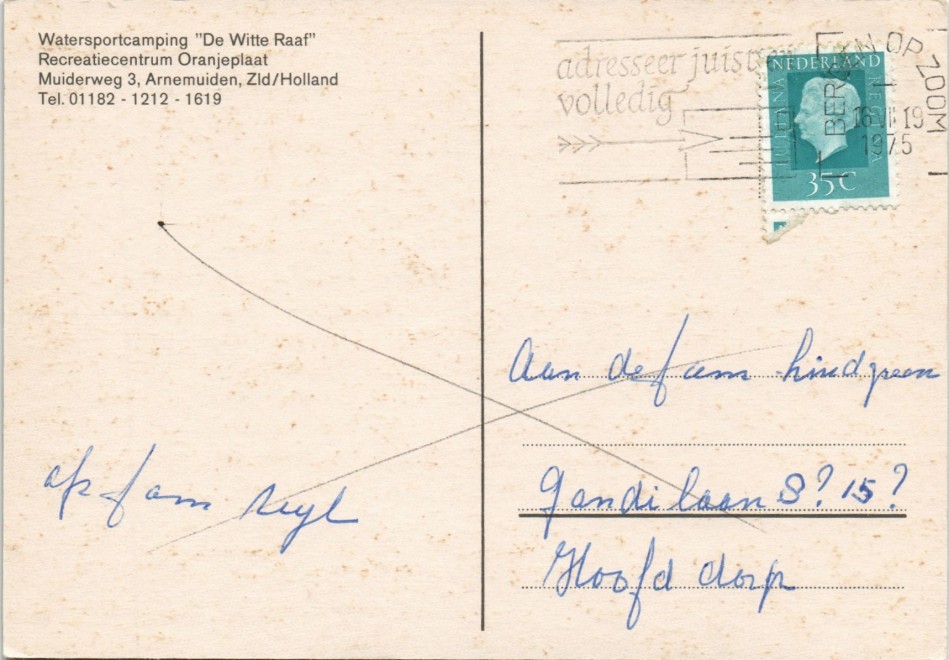 Watersportcamping "De Witte Raaf"
Recreatiecentrum Oranjeplaat
Muiderweg 3, Arnemuiden, Zld/Holland
Tel. 01182 - 1212 - 1619
adresseer juist en
volledig
BERGEN OP ZOOM
16 VII 19
1975
NEDERLAND
JULIANA REGINA
35C
Aan de fam hindgreen
Gandilaan 8? 15?
Hoofddorp
afz fam